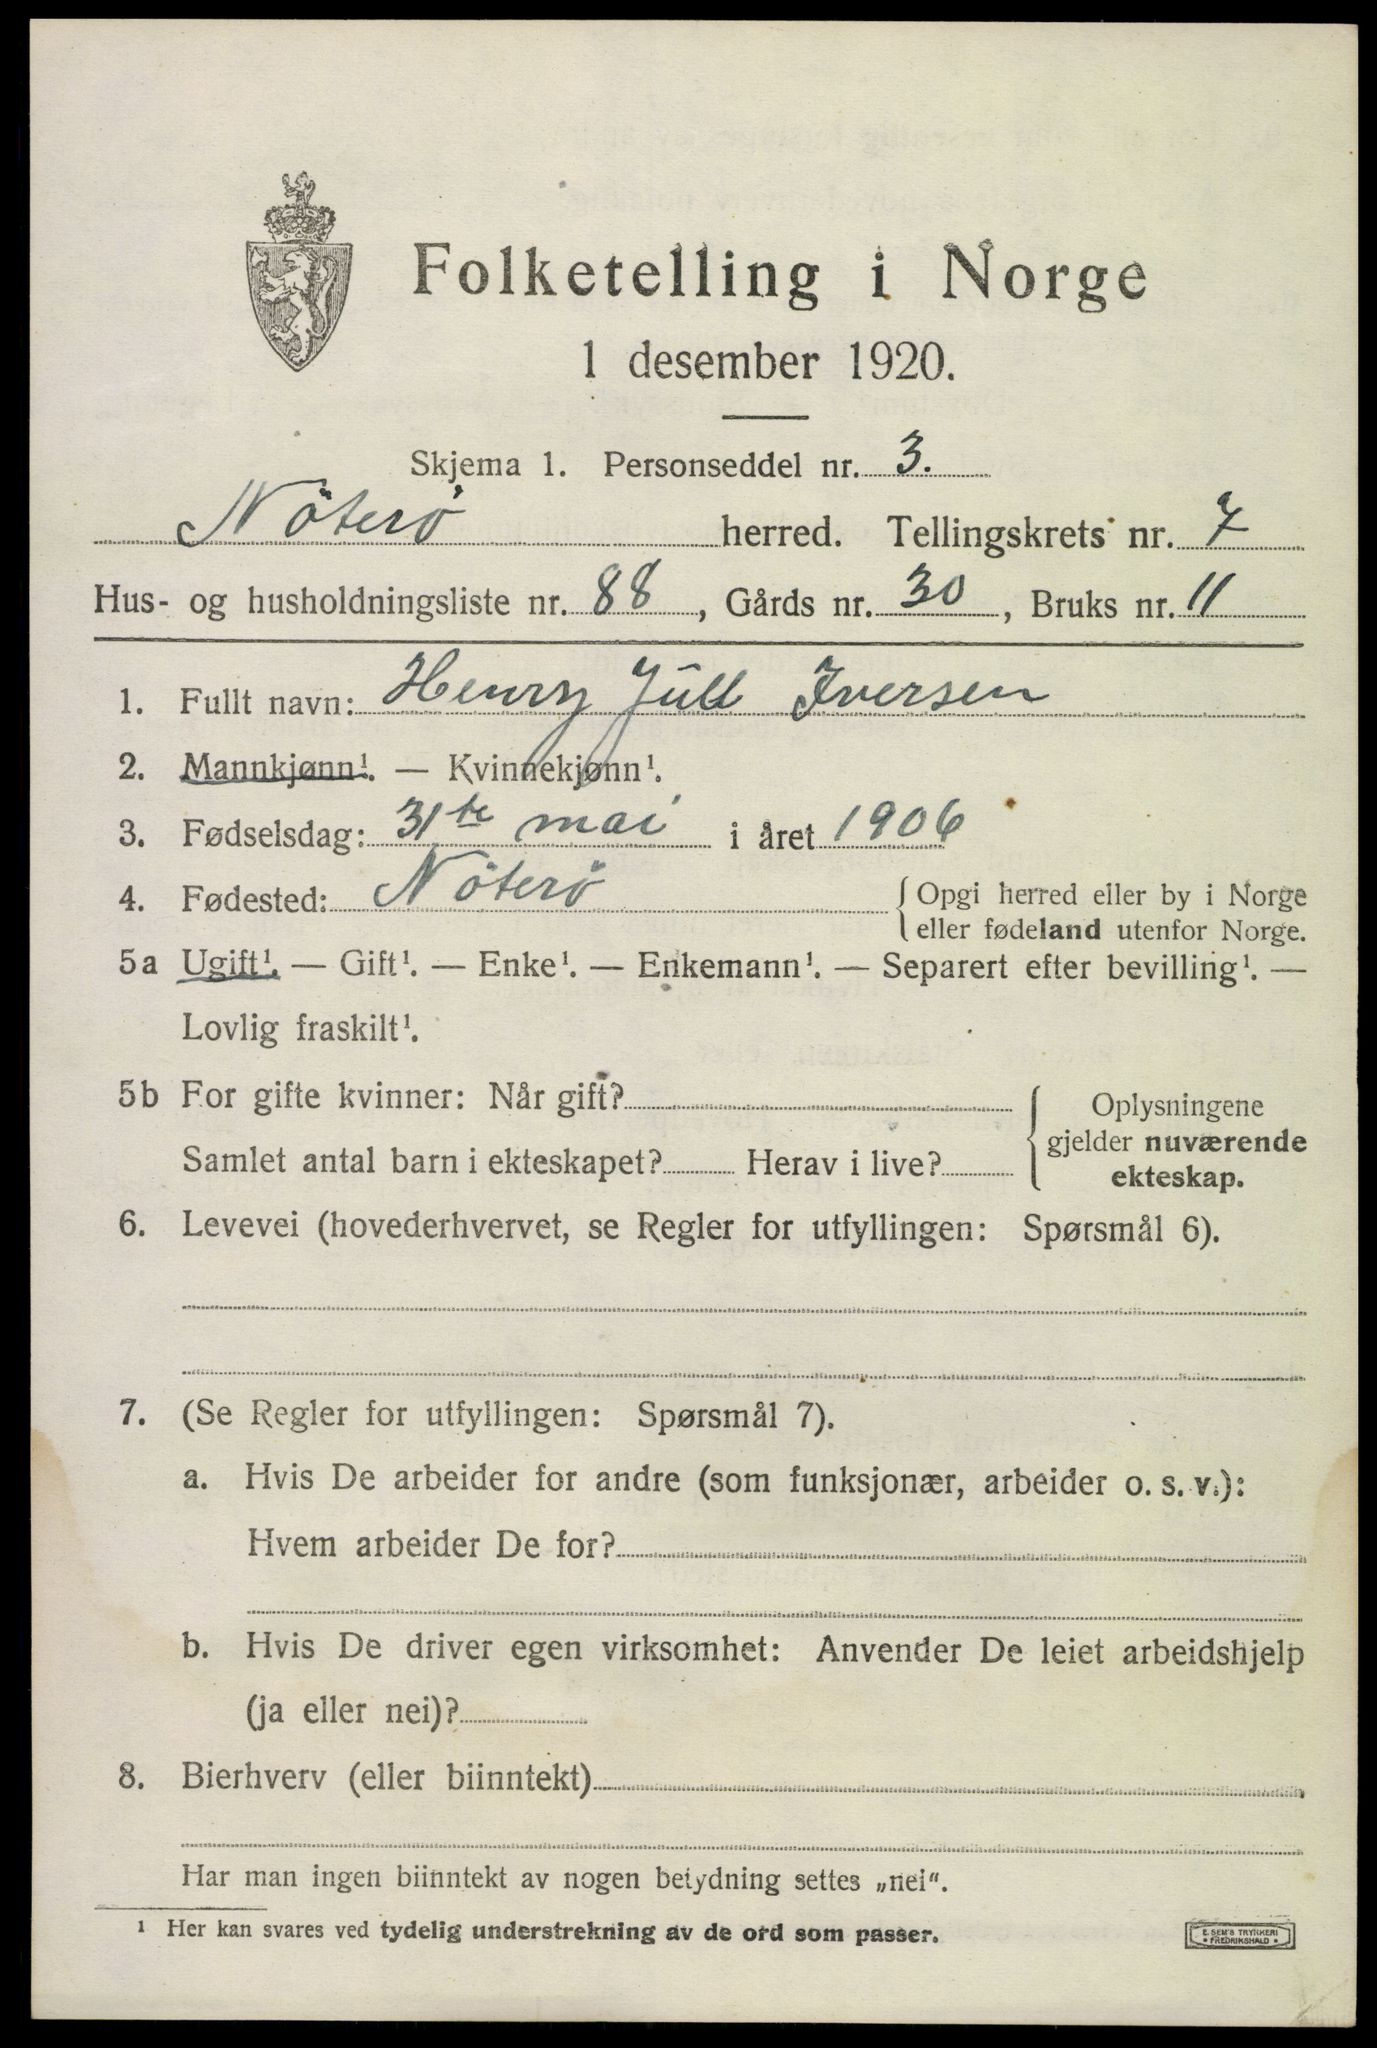 Folketelling i Norge
1 desember 1920.
Skjema 1. Personseddel nr. 3.
Nöterö herred. Tellingskrets nr. 7
Hus- og husholdningsliste nr. 88, Gårds nr. 30, Bruks nr. 11
1. Fullt navn: Henry Jull Iversen
2. Mannkjønn¹. — Kvinnekjønn¹.
3. Fødselsdag: 31te mai i året 1906
4. Fødested: Nöterö { Opgi herred eller by i Norge
eller fødeland utenfor Norge.
5a Ugift¹. — Gift¹. — Enke¹. — Enkemann¹. — Separert efter bevilling¹. —
Lovlig fraskilt¹.
5b For gifte kvinner: Når gift?
Samlet antal barn i ekteskapet? Herav i live?
Oplysningene
gjelder nuværende
ekteskap.
6. Levevei (hovederhvervet, se Regler for utfyllingen: Spørsmål 6).
7. (Se Regler for utfyllingen: Spørsmål 7).
a. Hvis De arbeider for andre (som funksjonær, arbeider o. s. v.):
Hvem arbeider De for?
b. Hvis De driver egen virksomhet: Anvender De leiet arbeidshjelp
(ja eller nei)?
8. Bierhverv (eller biinntekt)
Har man ingen biinntekt av nogen betydning settes „nei".
¹ Her kan svares ved tydelig understrekning av de ord som passer.
E. SEM'S TRYKKERI
• FREDRIKSHALD •